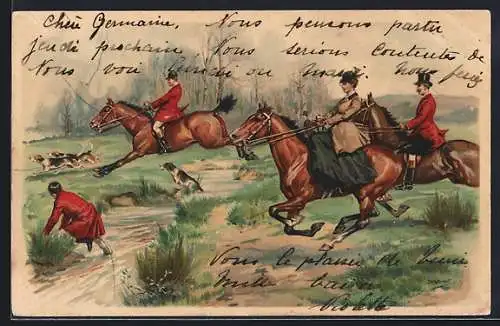 Chère Germaine, Nous pensons partir
jeudi prochain Nous serions contentes de
Vous voir lundi ou mardi.
Vous le plaisir de
Mille baisers
Violette